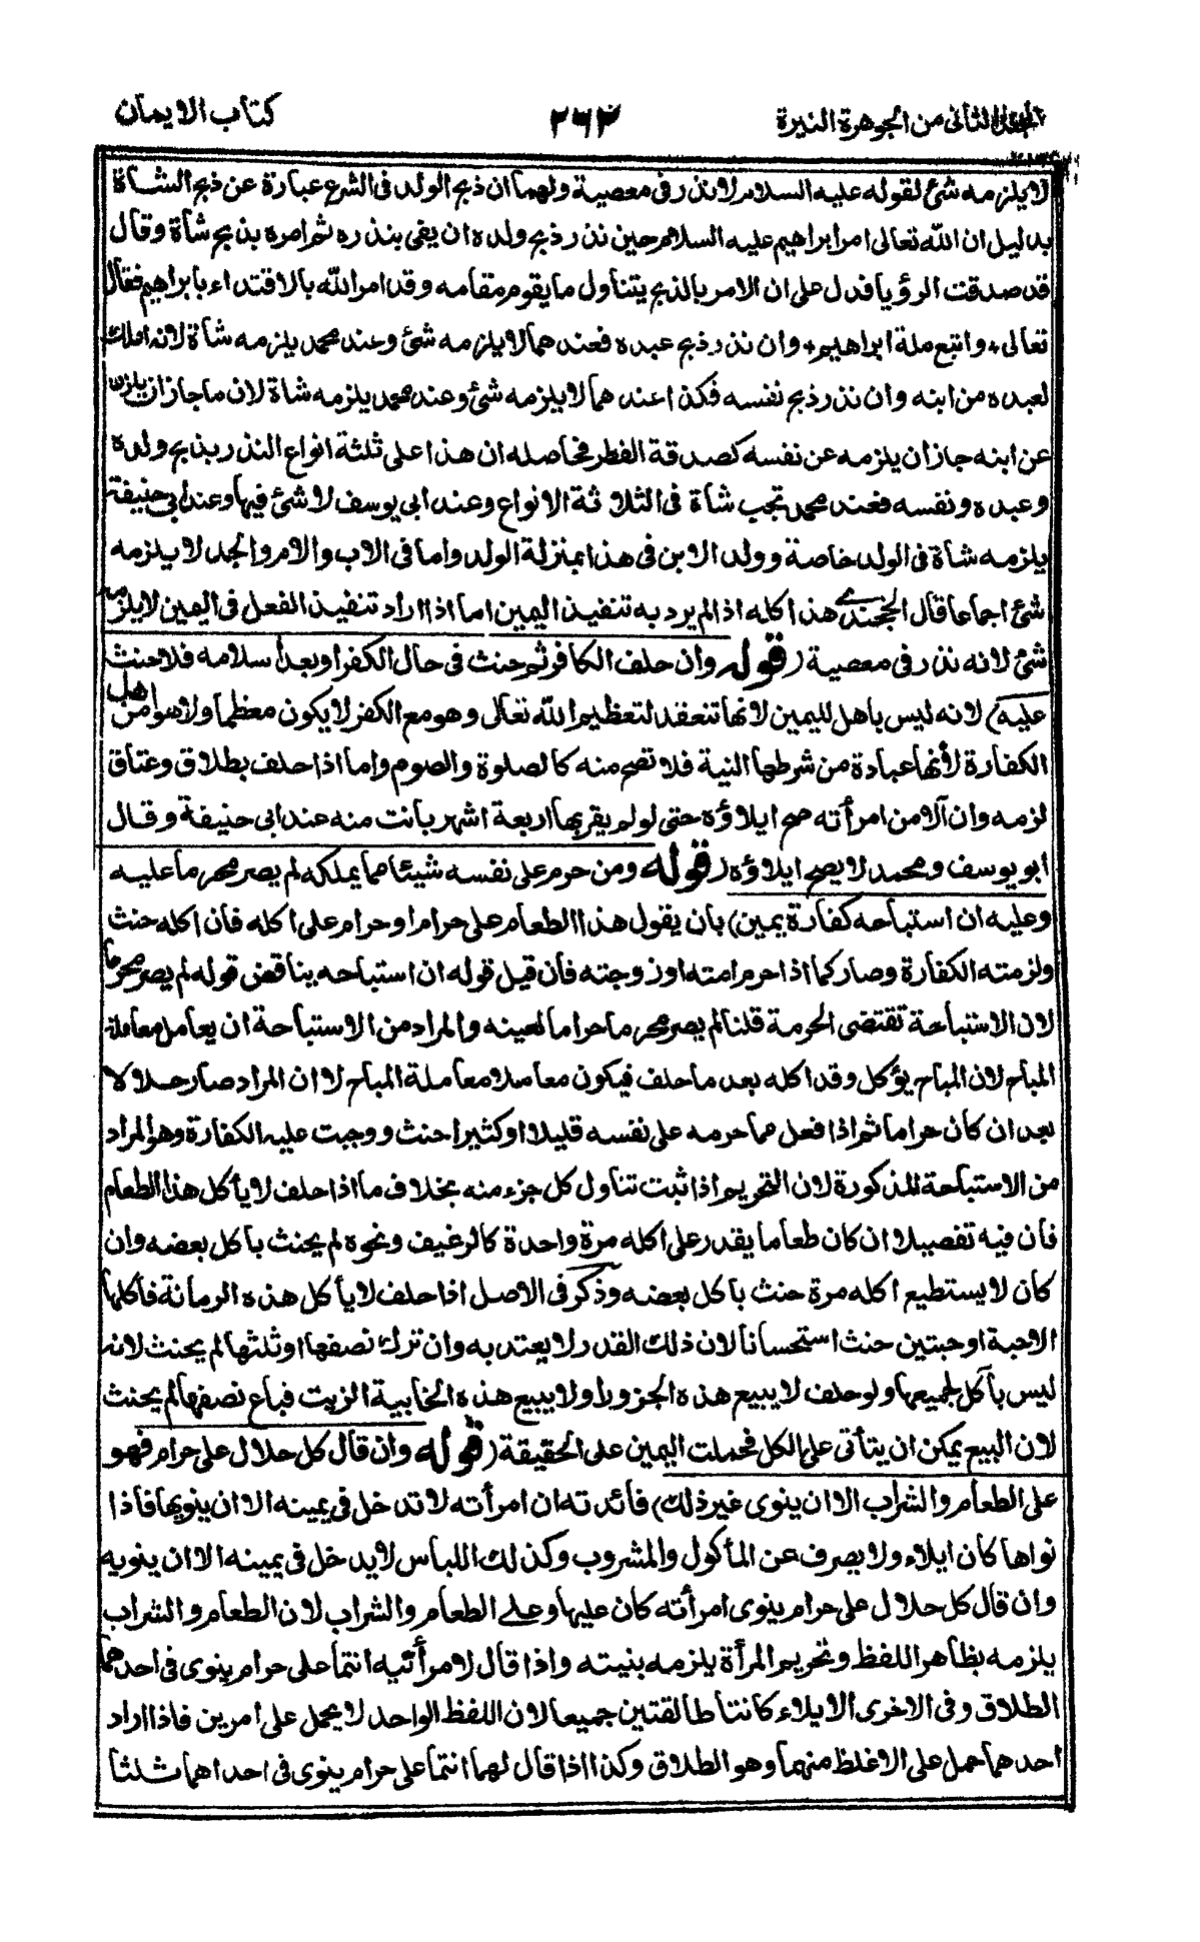 الجلد الثانى من الجوهرة النيرة
٢٦٣
كتاب الايمان
لا يلزمه شئ لقوله عليه السلام لا نذر فى معصية ولهما ان ذبح الولد فى الشرع عبارة عن ذبح الشاة
بدليل ان الله تعالى امر ابراهيم عليه السلام حين نذر ذبح ولده ان يفى بنذره ثم امره بذبح شاة وقال
قد صدقت الرؤيا فدل على ان الامر بالذبح يتناول ما يقوم مقامه وقد امر الله بالاقتداء بابراهيم فقال
تعالى ٭ واتبع ملة ابراهيم ٭ وان نذر ذبح عبده فعندهما لا يلزمه شئ وعند محمد يلزمه شاة لانه املك
لعبده من ابنه وان نذر ذبح نفسه فكذا عندهما لا يلزمه شئ وعند محمد يلزمه شاة لان ما جاز ان يلزمه
عن ابنه جاز ان يلزمه عن نفسه كصدقة الفطر فحاصله ان هذا على ثلثة انواع النذر بذبح ولده
وعبده ونفسه فعند محمد تجب شاة فى الثلاثة الانواع وعند ابى يوسف لا شئ فيها وعند ابى حنيفة
يلزمه شاة فى الولد خاصة وولد الابن فى هذا بمنزلة الولد واما فى الاب والام والجد لا يلزمه
شئ اجماعا قال الخجندى هذا كله اذا لم يرد به تنفيذ اليمين اما اذا اراد تنفيذ الفعل فى اليمين لا يلزمه
شئ لانه نذر فى معصية (قوله وان حلف الكافر ثم حنث فى حال الكفر او بعد اسلامه فلا حنث
عليه) لانه ليس باهل لليمين لانها تنعقد لتعظيم الله تعالى وهو مع الكفر لا يكون معظما ولا هو من اهل
الكفارة لأنها عبادة من شرطها النية فلا تصح منه كالصلوة والصوم واما اذا حلف بطلاق وعتاق
لزمه وان آلا من امرأته صح ايلاؤه حتى لو لم يقربها اربعة اشهر بانت منه عند ابى حنيفة وقال
ابو يوسف ومحمد لا يصح ايلاؤه (قوله ومن حرم على نفسه شيئا مما يملكه لم يصر محرما عليه
وعليه ان استباحه كفارة يمين) بان يقول هذا الطعام على حرام او حرام على اكله فان اكله حنث
ولزمته الكفارة وصار كما اذا حرم امته او زوجته فان قيل قوله ان استباحه يناقض قوله لم يصر محرما
لان الاستباحة تقتضى الحرمة قلنا لم يصر محرما حراما لعينه والمراد من الاستباحة ان يعامل معاملة
المباح لان المباح يؤكل وقد اكله بعد ما حلف فيكون معاملا معاملة المباح لا ان المراد صار حلالا
بعد ان كان حراما ثم اذا فعل مما حرمه على نفسه قليلا او كثيرا حنث ووجبت عليه الكفارة وهو المراد
من الاستباحة المذكورة لان التحريم اذا ثبت تناول كل جزء منه بخلاف ما اذا حلف لا يأكل هذا الطعام
فان فيه تفصيلا ان كان طعاما يقدر على اكله مرة واحدة كالرغيف ونحوه لم يحنث باكل بعضه وان
كان لا يستطيع اكله مرة حنث باكل بعضه وذكر فى الاصل اذا حلف لا يأكل هذه الرمانة فأكلها
الا حبة او حبتين حنث استحسانا لان ذلك القدر لا يعتد به وان ترك نصفها او ثلثها لم يحنث لانه
ليس بآكل لجميعها ولو حلف لا يبيع هذه الجزور او لا يبيع هذه الخابية الزيت فباع نصفها لم يحنث
لان البيع يمكن ان يتأتى على الكل فحملت اليمين على الحقيقة (قوله وان قال كل حلال على حرام فهو
على الطعام والشراب الا ان ينوى غير ذلك) فائدته ان امرأته لا تدخل فى يمينه الا ان ينويها فاذا
نواها كان ايلاء ولا يصرف عن المأكول والمشروب وكذلك اللباس لا يدخل فى يمينه الا ان ينويه
وان قال كل حلال على حرام ينوى امرأته كان عليها وعلى الطعام والشراب لان الطعام والشراب
يلزمه بظاهر اللفظ وتحريم المرأة يلزمه بنيته واذا قال لامرأتيه انتما على حرام ينوى فى احدهما
الطلاق وفى الاخرى الايلاء كانتا طالقتين جميعا لان اللفظ الواحد لا يحمل على أمرين فاذا اراد
احدهما حمل على الاغلظ منهما وهو الطلاق وكذا اذا قال لهما انتما على حرام ينوى فى احداهما ثلثا